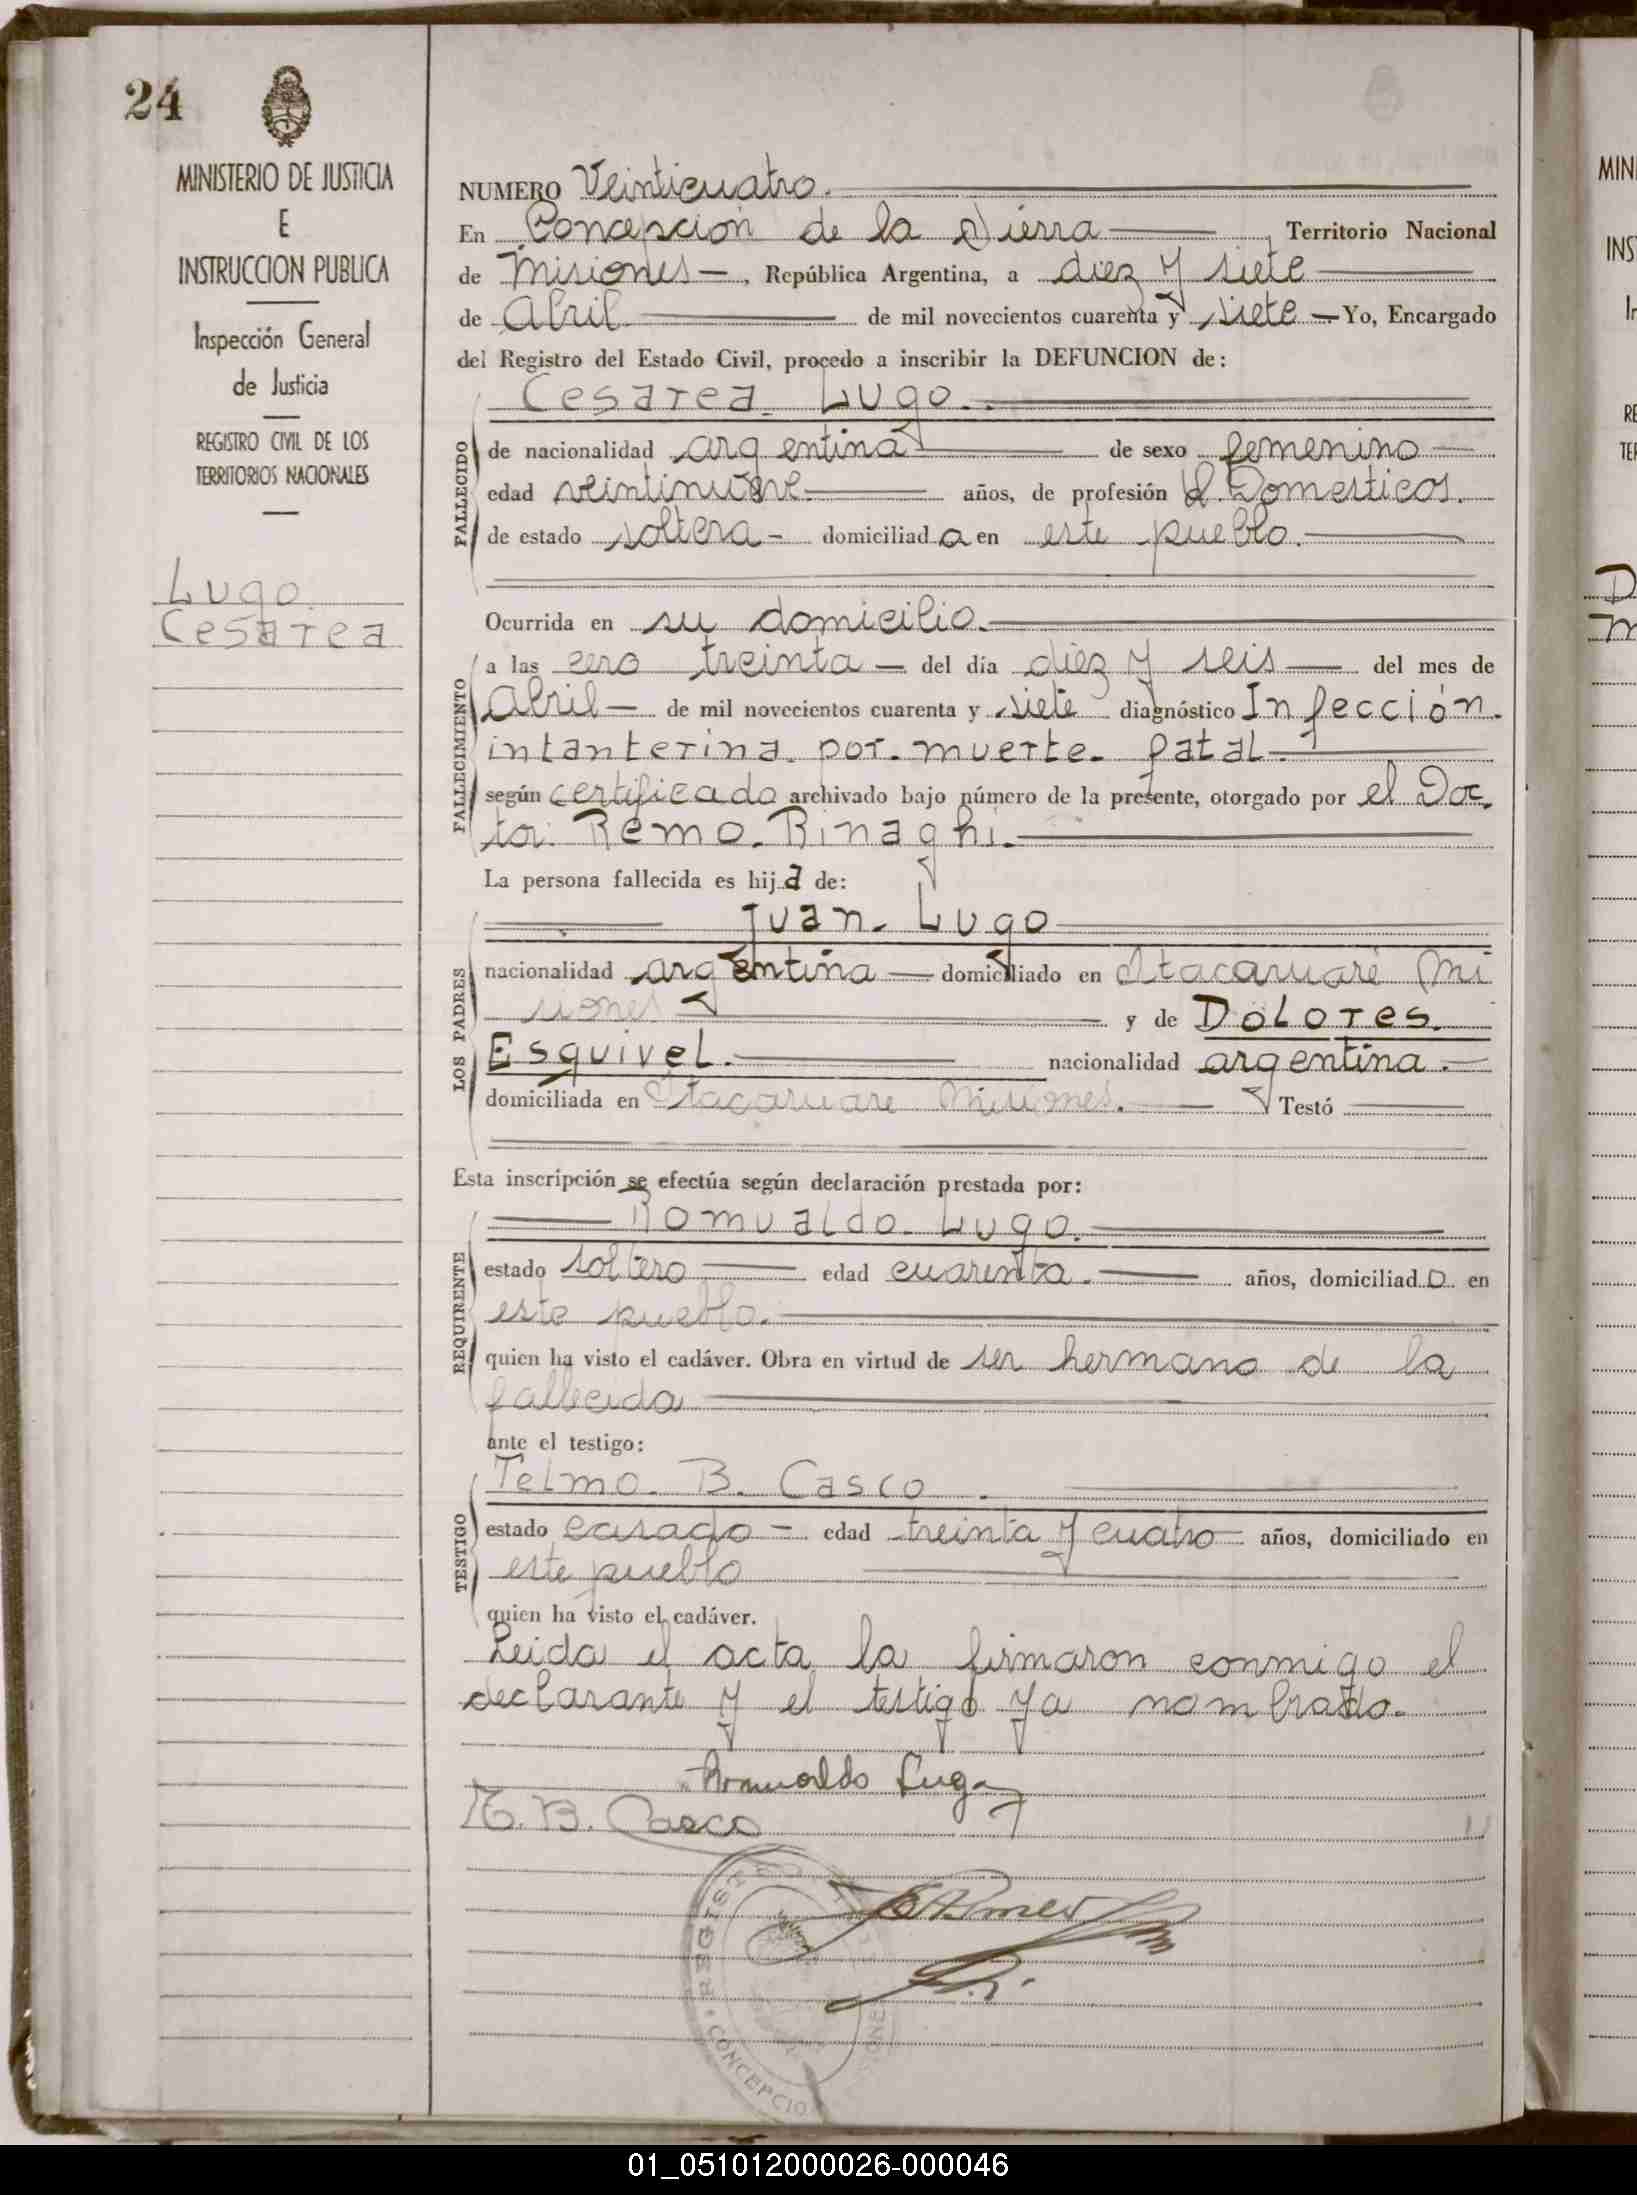 24
MINISTERIO DE JUSTICIA
E
INSTRUCCION PUBLICA
Inspección General
de Justicia
REGISTRO CIVIL DE LOS
TERRITORIOS NACIONALES
Lugo
Cesarea
NUMERO Veinticuatro.
En Concepción de la Sierra, Territorio Nacional
de Misiones, República Argentina, a diez y siete
de Abril de mil novecientos cuarenta y siete Yo, Encargado
del Registro del Estado Civil, procedo a inscribir la DEFUNCION de:
Cesarea Lugo.
FALLECIDO
de nacionalidad argentina de sexo femenino
edad veintinueve años, de profesión Q. Domesticos.
de estado soltera domiciliada en este pueblo.
Ocurrida en su domicilio.
FALLECIMIENTO
a las cero treinta del día diez y seis del mes de
Abril de mil novecientos cuarenta y siete diagnóstico Infección.
intanterina por muerte fatal.
según certificado archivado bajo número de la presente, otorgado por el Doc.
tor Remo Binaghi.
La persona fallecida es hija de:
LOS PADRES
Juan Lugo
nacionalidad argentina domiciliado en Itacaruaré Mi
siones y de Dolores.
Esquivel. nacionalidad argentina.
domiciliada en Itacaruare Misiones. Testó
Esta inscripción se efectúa según declaración prestada por:
REQUIRENTE
Romualdo Lugo.
estado soltero edad cuarenta. años, domiciliado en
este pueblo.
quien ha visto el cadáver. Obra en virtud de ser hermano de la
fallecida
ante el testigo:
TESTIGO
Telmo B. Casco.
estado casado edad treinta y cuatro años, domiciliado en
este pueblo
quien ha visto el cadáver.
Leida el acta la firmaron conmigo el
declarante y el testigo ya nombrado.
Romualdo Lugo
T. B. Casco
CONCEPCIO
01_051012000026-000046